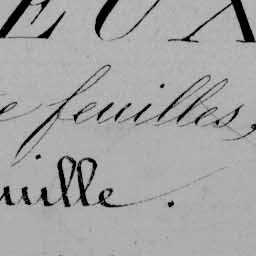 EUX
e feuilles,
uille.